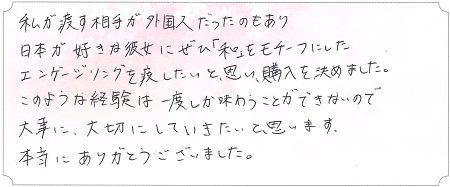 私が渡す相手が外国人だったのもあり
日本が好きな彼女にぜひ「和」をモチーフにした
エンゲージリングを渡したいと思い、購入を決めました。
このような経験は一度しか味わうことができないので
大事に、大切にしていきたいと思います。
本当にありがとうございました。